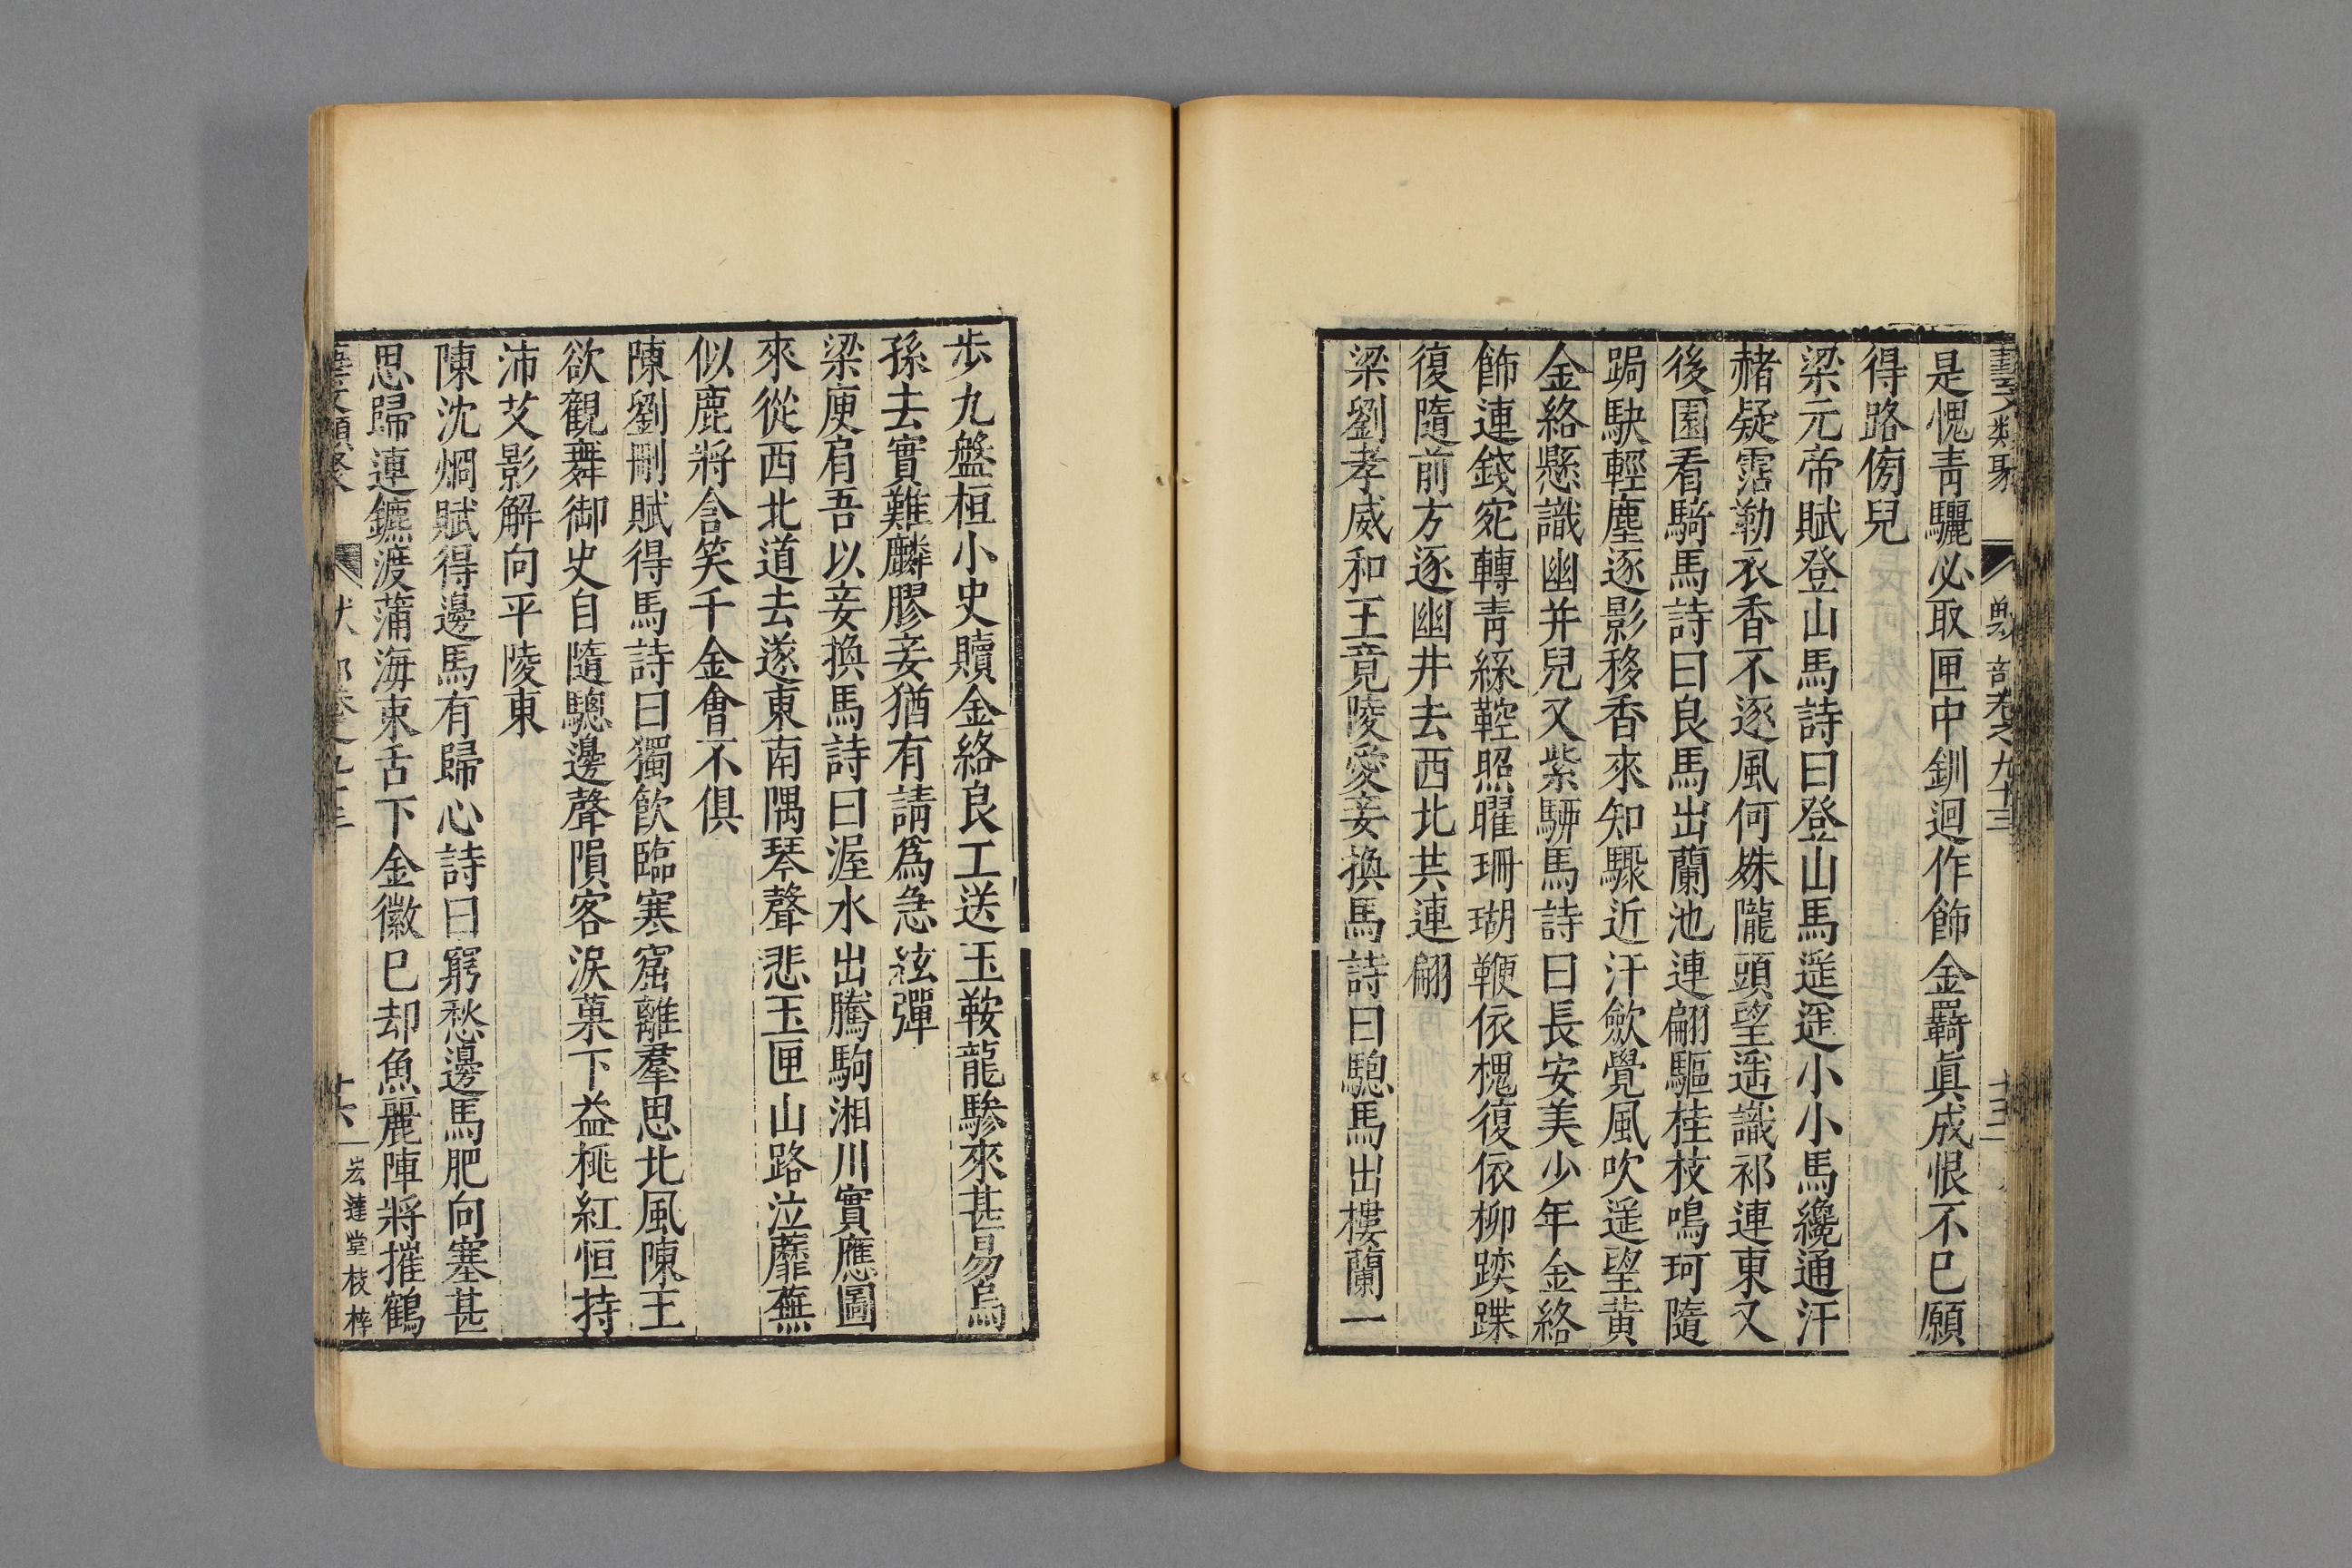 藝文類聚 獸部卷之九十三
是愧青驪必取匣中釧迴作飾金羇眞成恨不已願
得路傍兒
梁元帝賦登山馬詩曰登山馬遥遥小小馬纔通汗
赭疑霑勒衣香不逐風何殊隴頭望遥識祁連東又
後園看騎馬詩曰良馬出蘭池連翩驅桂枝鳴珂隨
跼駃輕塵逐影移香來知驟近汗歛覺風吹遥望黄
金絡懸識幽并兒又紫騮馬詩曰長安美少年金絡
飾連錢宛轉青絲鞚照曜珊瑚鞭依槐復依柳躞蹀
復隨前方逐幽井去西北共連翩
梁劉孝威和王竟陵愛妾換馬詩曰驄馬出樓蘭一
歩九盤桓小史贖金絡良工送玉鞍龍驂來甚易烏
孫去實難麟膠妾猶有請爲急絃彈
梁庾肩吾以妾換馬詩曰渥水出騰駒湘川實應圖
來從西北道去逐東南隅琴聲悲玉匣山路泣蘼蕪
似鹿將含笑千金會不俱
陳劉刪賦得馬詩曰獨飲臨寒窟離羣思北風陳王
欲觀舞御史自隨驄邊聲隕客淚菓下益桃紅恒持
沛艾影解向平陵東
陳沈烱賦得邊馬有歸心詩曰窮愁邊馬肥向塞甚
思歸連鑣渡蒲海束舌下金徽已却魚麗陣將摧鶴
藝文類聚 部卷之九十三 十六 宏達堂校梓